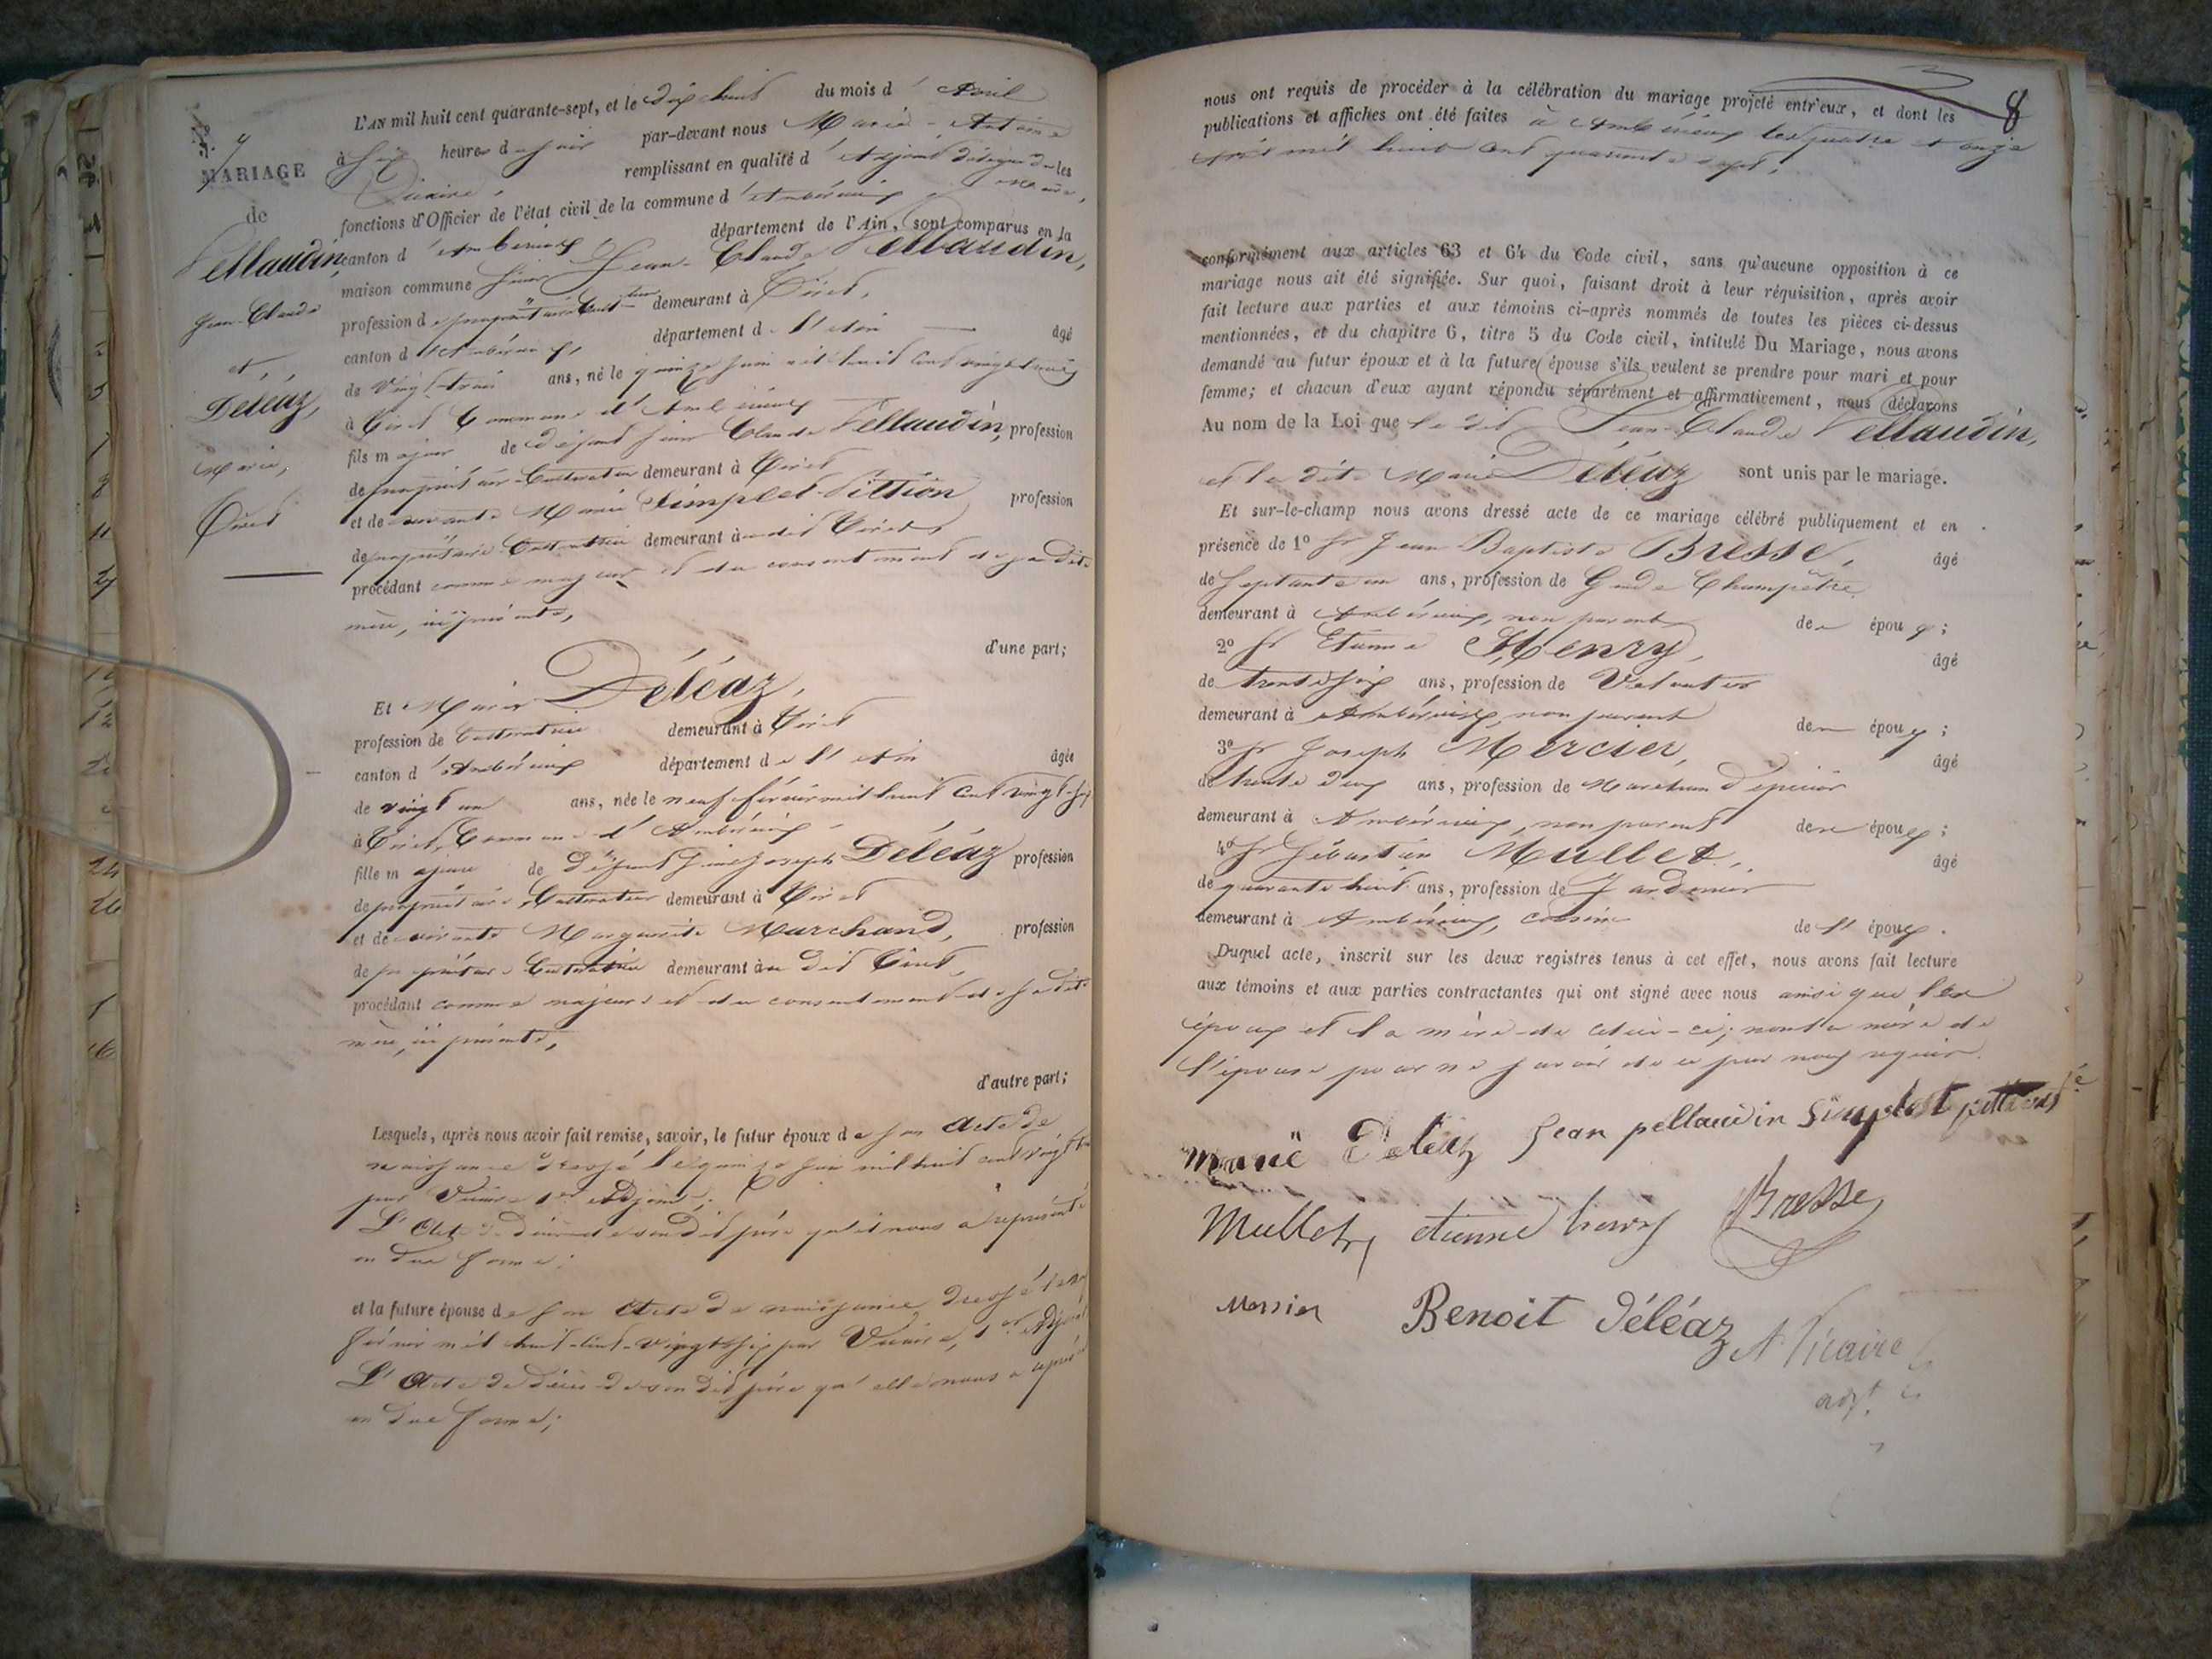 7
MARIAGE
de
Pellaudin,
Jean-Claude
et
Déléaz,
Marie,
Tiret
L'AN mil huit cent quarante-sept, et le dix huit du mois d'Avril
à six heures du soir par-devant nous Marie-Antoine
Vicaire, remplissant en qualité d'Adjoint délégué les
fonctions d'Officier de l'état civil de la commune d'Ambérieux,
canton d'Ambérieux, département de l'Ain, sont comparus en la
maison commune Sieur Jean-Claude Pellaudin,
profession de propriétaire Cultivateur demeurant à Tiret,
canton d'Ambérieux, département de l'Ain âgé
de vingt trois ans, né le quinze juin mil huit cent vingt trois
à Tiret Commune d'Ambérieux
fils majeur de défunt sieur Claude Pellaudin, profession
de propriétaire Cultivateur demeurant à Tiret
et de vivante Marie Simplet-Pittion profession
de propriétaire Cultivatrice demeurant au dit Tiret
procédant comme majeur et du consentement de sa dite
mère, ici présente,
d'une part;
Et Marie Déléaz,
profession de Cultivatrice demeurant à Tiret
canton d'Ambérieux département de l'Ain âgée
de vingt un ans, née le neuf février mil huit cent vingt-six
à Tiret, Commune d'Ambérieux
fille majeure de défunt sieur Joseph Déléaz profession
de propriétaire Cultivateur demeurant à Tiret
et de vivante Marguerite Marchand, profession
de propriétaire Cultivatrice demeurant au dit Tiret,
procédant comme majeure et du consentement de sa dite
mère, ici présente,
d'autre part;
Lesquels, après nous avoir fait remise, savoir, le futur époux de son Acte de
naissance dressé le quinze juin mil huit cent vingt trois
par Vicaire 1er Adjoint;
L'Acte de décès de son dit père qu'il nous a représenté
en due forme;
et la future épouse de son Acte de naissance dressé le neuf
février mil huit-cent-vingt-six par Vicaire, 1er Adjoint
L'Acte de décès de son dit père qu'elle nous a représenté
en due forme;
8
nous ont requis de procéder à la célébration du mariage projeté entr'eux, et dont les
publications et affiches ont été faites à Ambérieux les quatre et onze
Avril mil huit cent quarante sept,
conformément aux articles 63 et 64 du Code civil, sans qu'aucune opposition à ce
mariage nous ait été signifiée. Sur quoi, faisant droit à leur réquisition, après avoir
fait lecture aux parties et aux témoins ci-après nommés de toutes les pièces ci-dessus
mentionnées, et du chapitre 6, titre 5 du Code civil, intitulé Du Mariage, nous avons
demandé au futur époux et à la future épouse s'ils veulent se prendre pour mari et pour
femme; et chacun d'eux ayant répondu séparément et affirmativement, nous déclarons
Au nom de la Loi que le dit Jean-Claude Pellaudin,
et la dite Marie Déléaz sont unis par le mariage.
Et sur-le-champ nous avons dressé acte de ce mariage célébré publiquement et en
présence de 1° Sr Jean Baptiste Bresse, âgé
de septante un ans, profession de Garde Champêtre
demeurant à Ambérieux, non parent des époux;
2° Sr Etienne Henry, âgé
de trente six ans, profession de
demeurant à Ambérieux, non parent des époux;
3° Sr Joseph Mercier, âgé
de trente deux ans, profession de Marchand Epicier
demeurant à Ambérieux, non parent des époux;
4° Sr Sébastien Mullet, âgé
de quarante huit ans, profession de Jardinier
demeurant à Ambérieux, cousin de l'époux.
Duquel acte, inscrit sur les deux registres tenus à cet effet, nous avons fait lecture
aux témoins et aux parties contractantes qui ont signé avec nous ainsi que les
époux et la mère de celui-ci; non la mère de
l'épouse pour ne savoir de ce par nous requise.
Marie Deleaz Jean pellaudin Simplest pittion
Mullet, etienne henry Bresse
Mersier Benoit Déléaz A Vicaire
adjt.